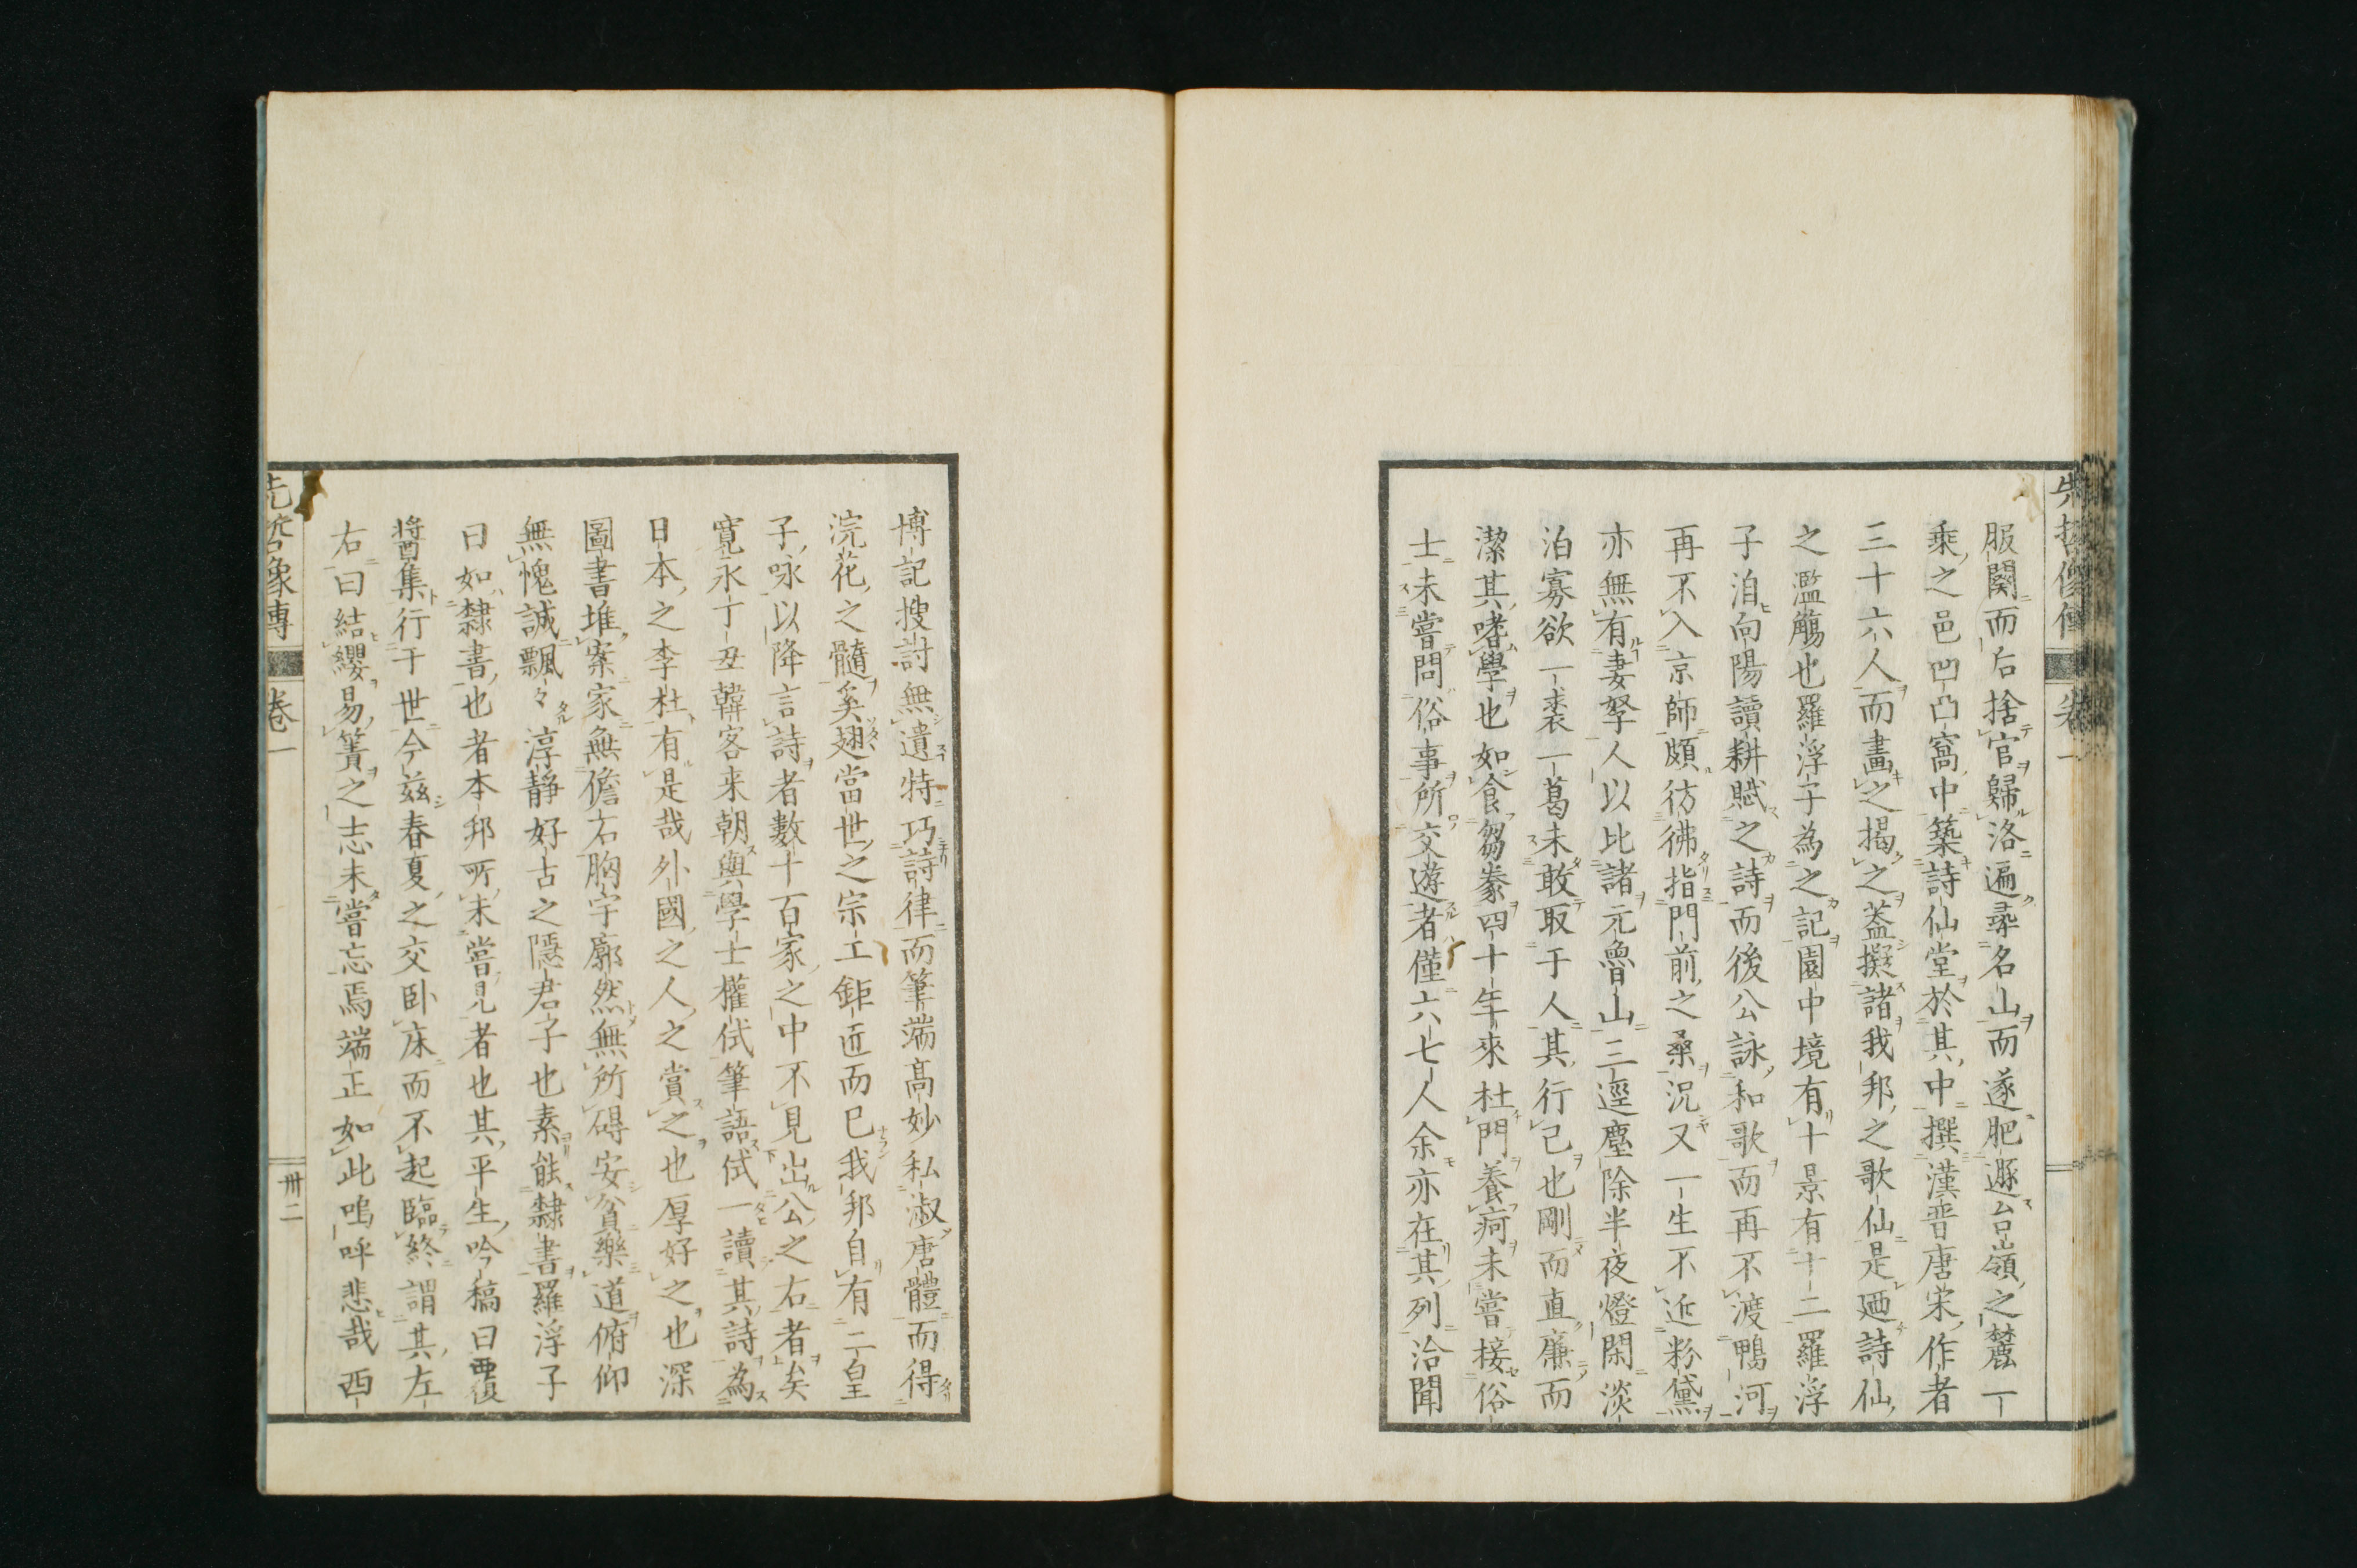 先哲像傳
卷一
服闋而后捨官歸洛遍尋名山而遂肥遯台嶺之麓一
乘之邑凹凸窩中築詩仙堂於其中撰漢晋唐宋作者
三十六人而畫之揭之蓋擬諸我邦之歌仙是廼詩仙
之濫觴也羅浮子為之記園中境有十景有十二羅浮
子洎向陽讀耕賦之詩而後公詠和歌而再不渡鴨河
再不入京師頗彷彿指門前之桑況又一生不近粉黛
亦無有妻孥人以比諸元魯山三逕塵除半夜燈閑淡
泊寡欲一裘一葛未敢取于人其行己也剛而直廉而
潔其嗜學也如食芻豢四十年來杜門養痾未嘗接俗
士未嘗問俗事所交遊者僅六七人余亦在其列洽聞
博記搜討無遺特巧詩律而筆端高妙私淑唐體而得
浣花之髓奚翅當世之宗工鉅匠而已我邦自有二皇
子咏以降言詩者數十百家之中不見出公之右者矣
寛永丁丑韓客来朝與學士權侙筆語侙一讀其詩為
日本之李杜有是哉外國之人之賞之也厚好之也深
圖書堆案家無儋石胸宇廓然無所碍安貧樂道俯仰
無愧誠飄々淳静好古之隱君子也素能隸書羅浮子
曰如隸書也者本邦所未嘗見者也其平生吟稿曰覆
醬集行于世今茲春夏之交卧床而不起臨終謂其左
右曰結纓易簀之志未嘗忘焉端正如此嗚呼悲哉西
先哲像傳
卷一
卅二